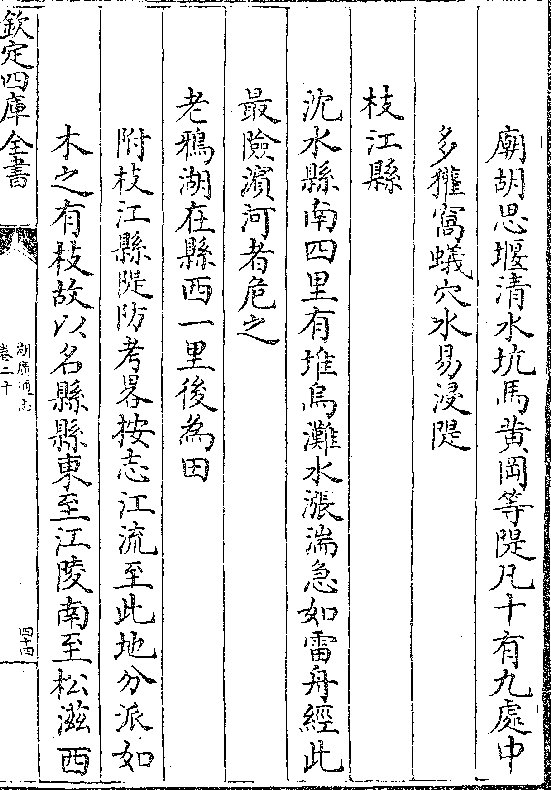 廟胡思堰清水坑馬黄岡等隄凡十有九處中
多獾窩蟻穴水易浸隄
枝江縣
沈水縣南四里有堆烏灘水漲湍急如雷舟經此
最險濱河者危之
老鴉湖在縣西一里後為田
附枝江縣隄防考畧按志江流至此地分派如
木之有枝故以名縣縣東至江陵南至松滋西
欽定四庫全書
湖廣通志
卷二十
四十四